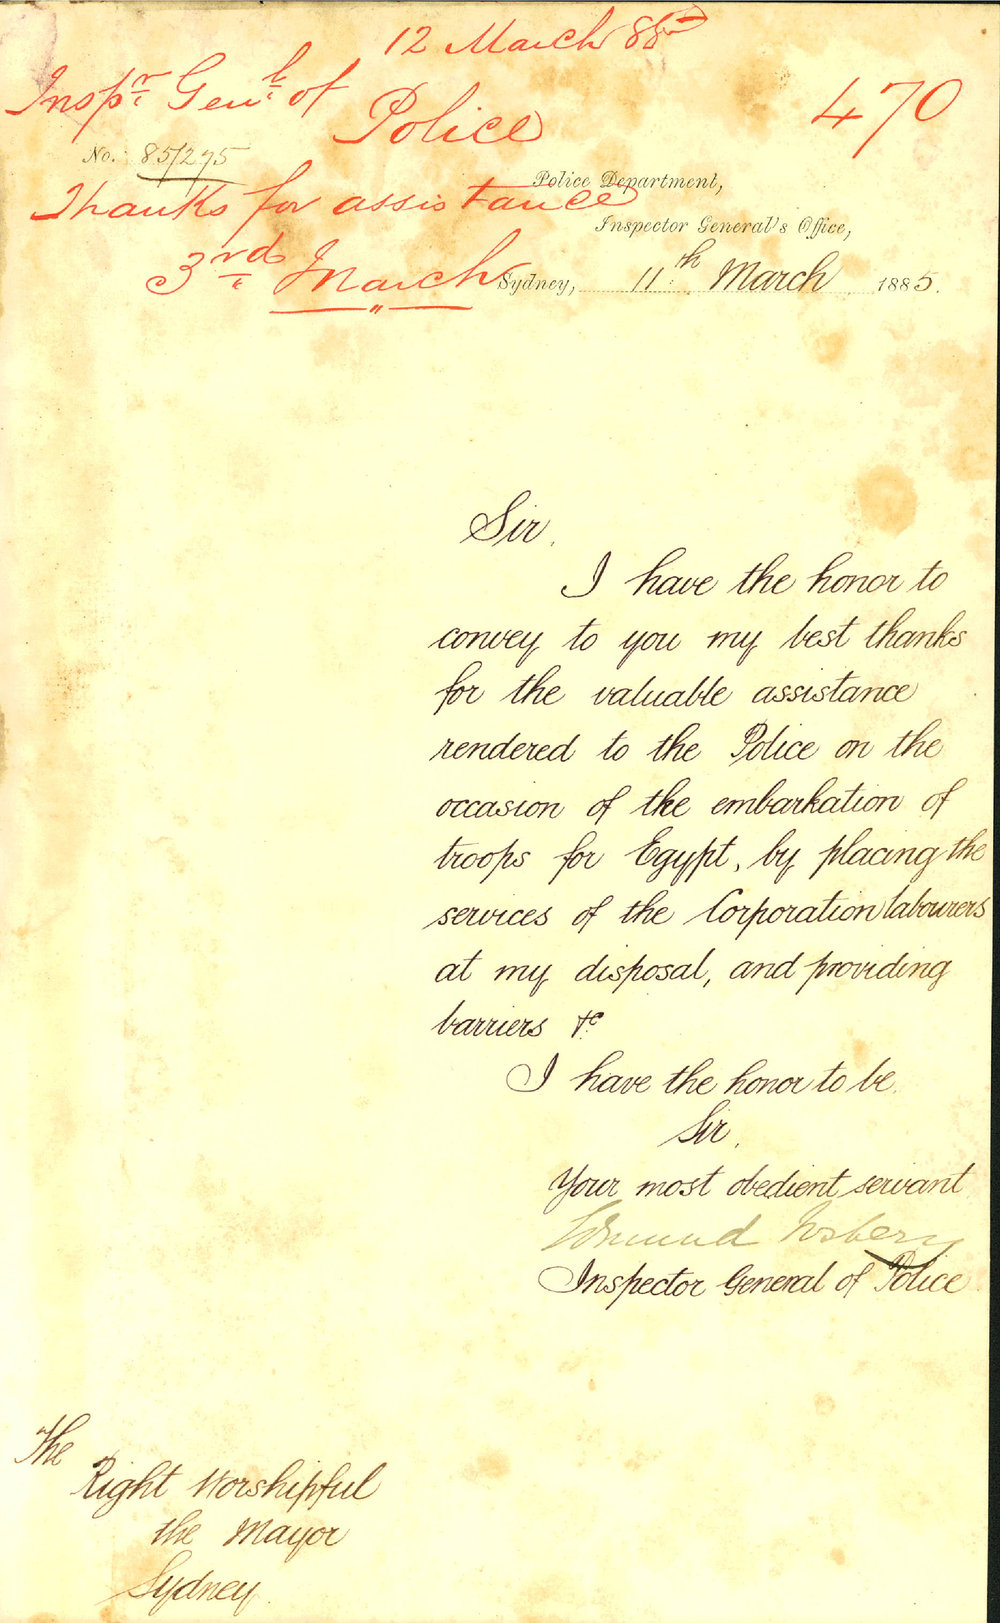 12 March 85
Inspr Genl of
Police
470
No. 85/275
Thanks for assistance
3rd March
Police Department,
Inspector General's Office,
Sydney, 11th March 1885.
Sir,
I have the honor to
convey to you my best thanks
for the valuable assistance
rendered to the Police on the
occasion of the embarkation of
troops for Egypt, by placing the
services of the Corporation labourers
at my disposal, and providing
barriers &c
I have the honor to be,
Sir,
Your most obedient servant
Edmund Fosbery
Inspector General of Police
The
Right Worshipful
the Mayor
Sydney.